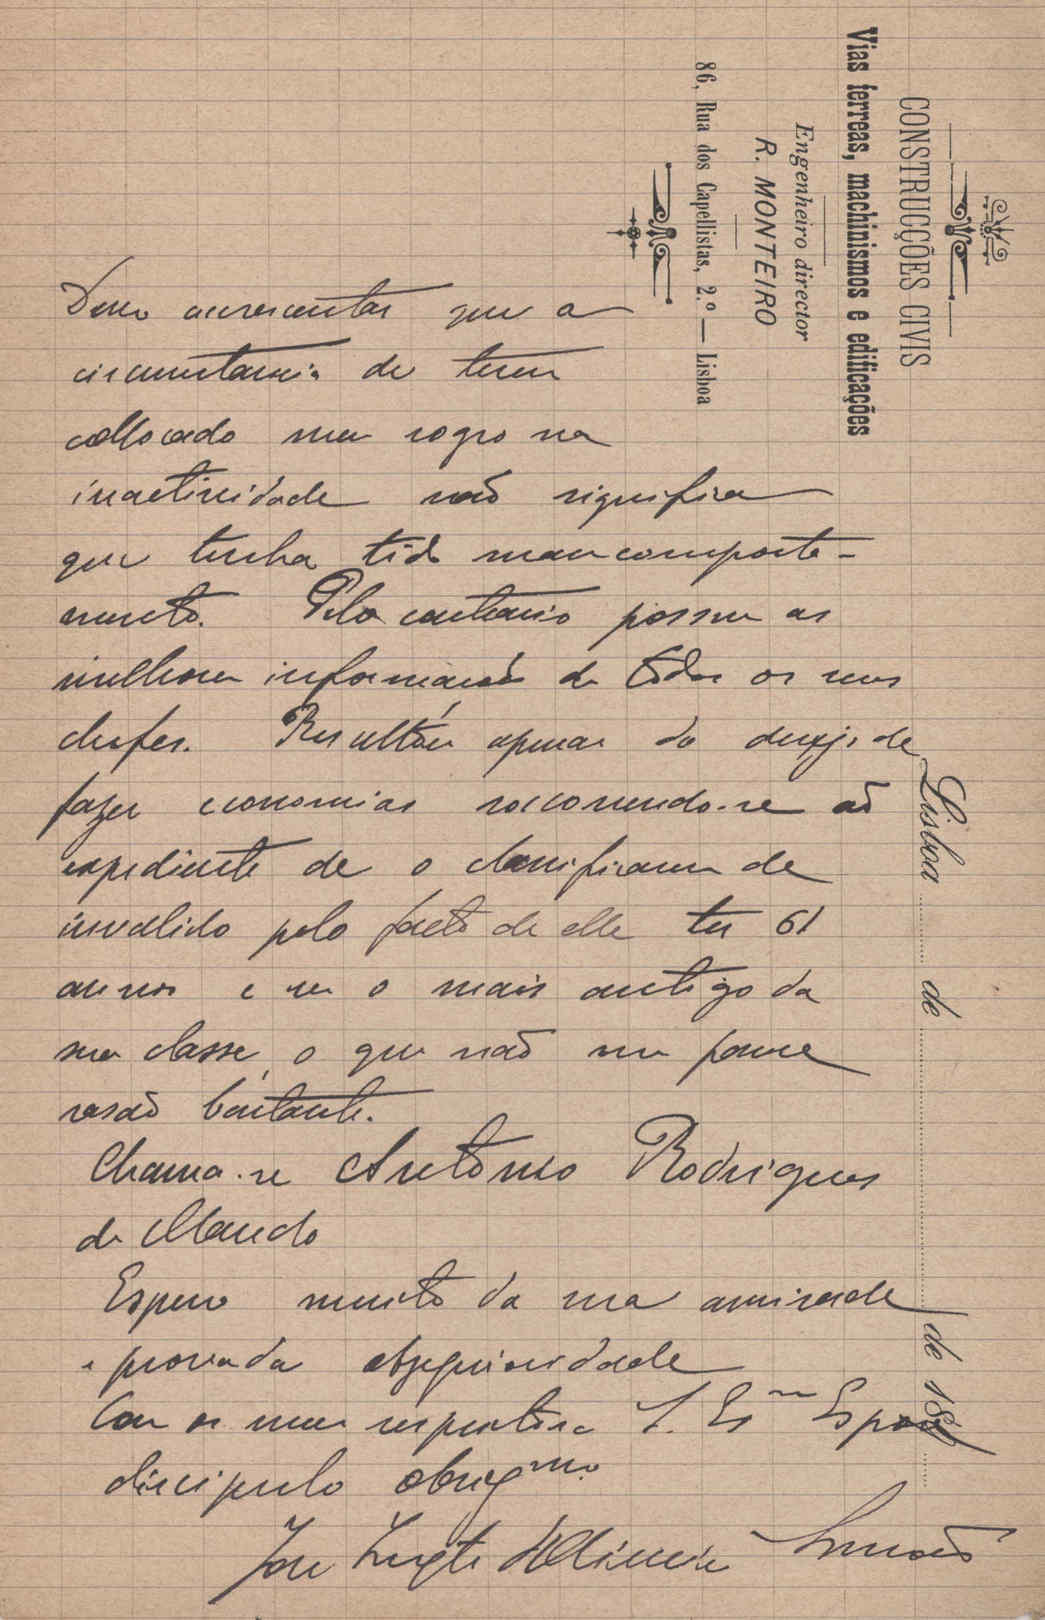 CONSTRUCÇÕES CIVIS
Vias ferreas, machinismos e edificações
Engenheiro director
R. MONTEIRO
86, Rua dos Capellistas, 2.º — Lisboa
Lisboa de de 18
Devo accrescentar que a
circumstancia de terem
collocado meu sogro na
inactividade não significa
que tenha tido mau comporta-
mento. Pelo contrario possue as
milhores informações de todos os seus
chefes. Resultou apenas do desejo de
fazer economias soccorrendo-se ao
expediente de o classificarem de
invalido pelo facto de elle ter 61
annos e ser o mais antigo da
sua classe, o que não me parece
rasão bastante.
Chama-se Antonio Rodrigues
de Macedo
Espero muito da sua amisade
e provada obsequiosidade
Com os meus respeitos a S. Exma Esposa
discipulo obrigmo
José d'Oliveira Simões